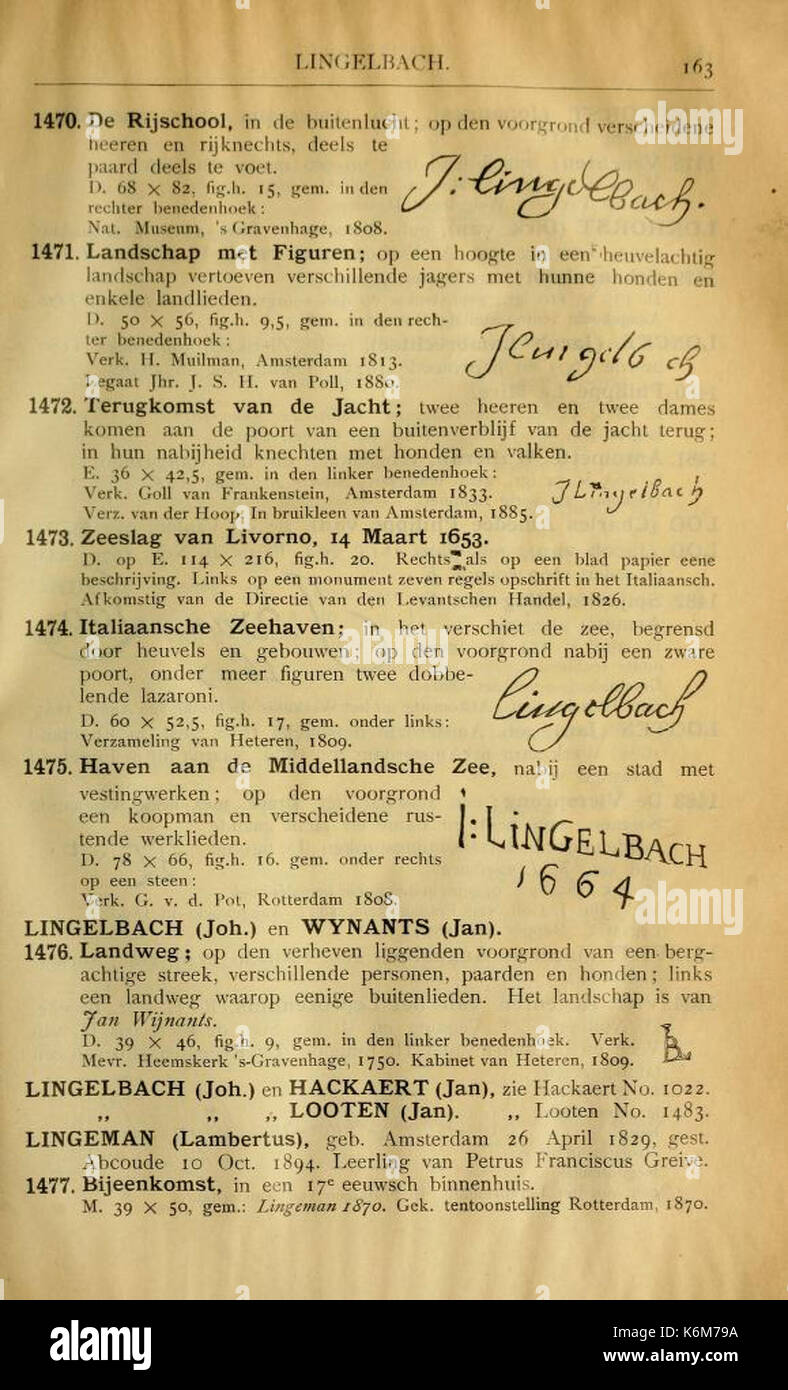 LINGELBACH.
163
1470. De Rijschool, in de buitenlucht; op den voorgrond verscheidene
heeren en rijknechts, deels te
paard deels te voet.
D. 68 X 82, fig.h. 15, gem. in den
rechter benedenhoek:
Nat. Museum, 's Gravenhage, 1808.
J: Lingelbach.
1471. Landschap met Figuren; op een hoogte in een heuvelachtig
landschap vertoeven verschillende jagers met hunne honden en
enkele landlieden.
D. 50 X 56, fig.h. 9,5, gem. in den rech-
ter benedenhoek:
Verk. H. Muilman, Amsterdam 1813.
Legaat Jhr. J. S. H. van Poll, 1880.
1472. Terugkomst van de Jacht; twee heeren en twee dames
komen aan de poort van een buitenverblijf van de jacht terug;
in hun nabijheid knechten met honden en valken.
E. 36 X 42,5, gem. in den linker benedenhoek:
Verk. Goll van Frankenstein, Amsterdam 1833.
Verz. van der Hoop. In bruikleen van Amsterdam, 1885.
1473. Zeeslag van Livorno, 14 Maart 1653.
D. op E. 114 X 216, fig.h. 20. Rechts als op een blad papier eene
beschrijving. Links op een monument zeven regels opschrift in het Italiaansch.
Afkomstig van de Directie van den Levantschen Handel, 1826.
1474. Italiaansche Zeehaven; in het verschiet de zee, begrensd
door heuvels en gebouwen; op den voorgrond nabij een zware
poort, onder meer figuren twee dobbe-
lende lazaroni.
D. 60 X 52,5, fig.h. 17, gem. onder links:
Verzameling van Heteren, 1809.
Lingelbach
1475. Haven aan de Middellandsche Zee, nabij een stad met
vestingwerken; op den voorgrond
een koopman en verscheidene rus-
tende werklieden.
D. 78 X 66, fig.h. 16. gem. onder rechts
op een steen:
Verk. G. v. d. Pot, Rotterdam 1808.
I: LINGELBACH
1664
LINGELBACH (Joh.) en WYNANTS (Jan).
1476. Landweg; op den verheven liggenden voorgrond van een berg-
achtige streek, verschillende personen, paarden en honden; links
een landweg waarop eenige buitenlieden. Het landschap is van
Jan Wijnants.
D. 39 X 46, fig.h. 9, gem. in den linker benedenhoek. Verk.
Mevr. Heemskerk 's-Gravenhage, 1750. Kabinet van Heteren, 1809.
LINGELBACH (Joh.) en HACKAERT (Jan), zie Hackaert No. 1022.
„ „ „ LOOTEN (Jan). „ Looten No. 1483.
LINGEMAN (Lambertus), geb. Amsterdam 26 April 1829, gest.
Abcoude 10 Oct. 1894. Leerling van Petrus Franciscus Greive.
1477. Bijeenkomst, in een 17e eeuwsch binnenhuis.
M. 39 X 50, gem.: Lingeman 1870. Gek. tentoonstelling Rotterdam, 1870.
alamy
alamy
alamy
alamy
Image ID: K6M79A
www.alamy.com